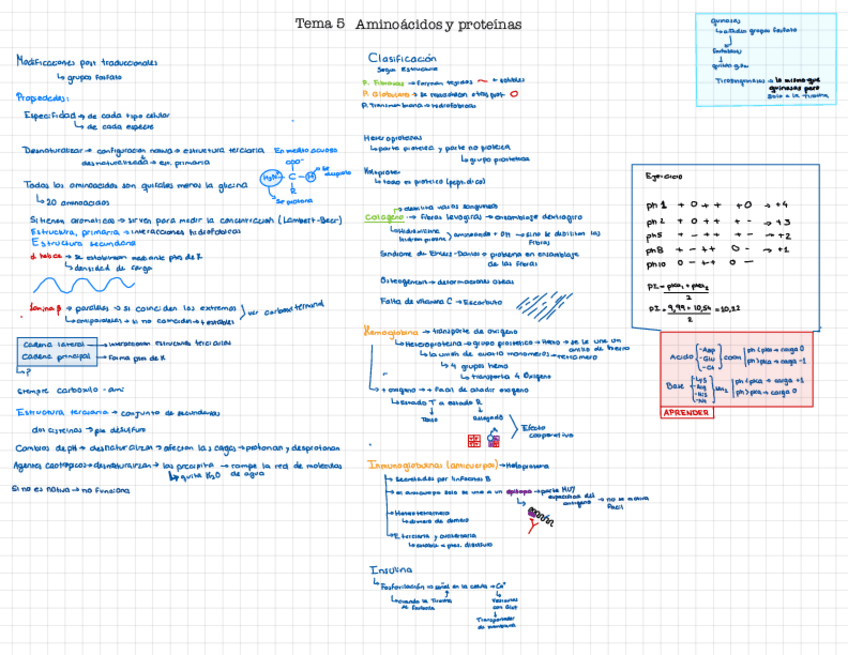 Tema 5 Aminoácidos y proteínas
Modificaciones post traduccionales
↳ grupos fosfato
Propiedades:
Especificidad → de cada tipo celular
↳ de cada especie
Desnaturalizar → configuración nativa → estructura terciaria
desnaturalizada → est. primaria
En medio acuoso
COO⁻
H₃N⁺ - C - H
R
Se protona
Todos los aminoacidos son quirales menos la glicina
↳ 20 aminoacidos
Si tienen aromaticos → sirven para medir la concentración (Lambert-Beer)
Estructura, primaria → interacciones hidrofobicas
Estructura secundaria
α hélice → se estabilizan mediante ptes de H
↳ densidad de carga
lamina β → paralelas → si coinciden los extremos
↳ antiparalelas → si no coinciden → estables
ver carbono terminal
cadena lateral → interaccionan estructura terciarias
cadena principal → forma ptes de H
↳ ?
siempre carboxilo - ami
Estructura terciaria → conjunto de secundarias
dos cisteinas → pte disulfuro
Cambios de pH → desnaturalizan → afectan las cargas → protonan y desprotonan
Agentes caotropicos → desnaturalizan → las precipita → rompe la red de moleculas de agua
↳ quita H₂O
Si no es nativa → no funciona
Clasificación
Según Estructura
P. Fibrosas → Forman tejidos
P. Globulares
P. Transmembrana → hidrofobicas
Heteroproteinas
↳ parte proteica y parte no proteica
↳ grupo prostetico
Holoprot
↳ todo es proteico (peptidico)
Colageno → fibras levogiras → ensamblaje dextrogiro
Sindrome de Ehlers-Danlos → problema en ensamblaje
de las fibras
Osteogenesis → deformaciones oseas
Falta de vitamina C → Escorbuto
Hemoglobina → transporte de oxigeno
↳ Heteroproteina → grupo prostetico → Hemo → se le une un
atomo de hierro
↳ la union de cuatro monomeros → tetramero
↳ 4 grupos hemo
↳ transporta 4 Oxigeno
+ oxigeno → + Facil de añadir oxigeno
↳ Estado T a estado R
Tenso
Relajado
Efecto
cooperativo
Inmunoglobulinas (anticuerpos) → Holoproteina
↳ Secretadas por linfocitos B
→ un anticuerpo solo se une a un epitopo → parte MUY
especifica del
antigeno
→ Heterotetramero
↳ dimero de dimero
↳ E. terciaria y cuaternaria
Insulina
↳ Fosforilación → señal en la celula → Ca²⁺
↳ cuando la Tirosina
se fosforila
Vesiculas
con Glut
Transportador
de membrana
quinasas
↳ añaden grupos fosfato
fosfatasas
quitan
Tirosinquinasas → lo mismo que
quinasas pero
solo a la tirosina
Ejercicio
pH 1 + 0 + + + 0 → +4
pH 2 + 0 + + + - → +3
pH 5 + - + + + - → +2
pH 8 + - + + 0 - → +1
pH 10 0 - + + 0 -
pI = pKa₁ + pKa₂ / 2
pI = 9,99 + 10,54 / 2 = 10,22
Acido
- Asp
- Glu
- Ct
COOH
pH < pka → carga 0
pH > pka → carga -1
Base
Lys
Arg
His
Nt
NH₂
pH < pka → carga +1
pH > pka → carga 0
APRENDER